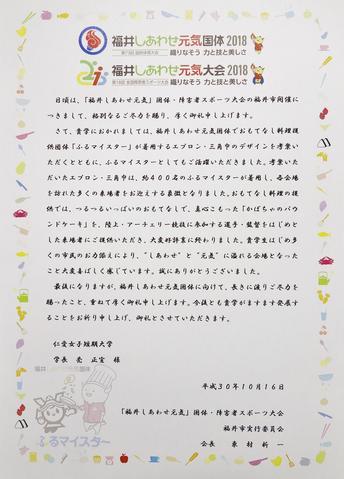 福井しあわせ元気国体2018
第73回 国民体育大会
織りなそう 力と技と美しさ
福井しあわせ元気大会2018
第18回 全国障害者スポーツ大会
織りなそう 力と技と美しさ
日頃は、「福井しあわせ元気」国体・障害者スポーツ大会の福井市開催に
つきまして、格別なるご尽力を賜り、厚く御礼申し上げます。
さて、貴学におかれましては、福井しあわせ元気国体でおもてなし料理提
供団体「ふるマイスター」が着用するエプロン・三角巾のデザインを考案い
ただくとともに、ふるマイスターとしてもご活躍いただきました。考案いた
だいたエプロン・三角巾は、約400名のふるマイスターが着用し、各会場
を訪れた多くの来場者をお迎えする象徴となりました。おもてなし料理の提
供では、つるつるいっぱいのおもてなしで、真心こもった「かぼちゃのパウ
ンドケーキ」を、陸上・アーチェリー競技に参加する選手・監督をはじめと
した来場者にご提供いただき、大変好評裏に終わりました。貴学生はじめ多
くの市民のお力添えにより、"しあわせ"と"元気"に溢れる会場となった
こと大変喜ばしく感じています。誠にありがとうございました。
最後になりますが、福井しあわせ元気国体に向けて、長きに渡りご尽力を
賜ったこと、重ねて厚く御礼申し上げます。今後とも貴学がますます発展す
ることをお祈り申し上げ、御礼とさせていただきます。
仁愛女子短期大学
学長 禿 正宣 様
福井しあわせ元気国体
ふるマイスター
平成30年10月16日
「福井しあわせ元気」国体・障害者スポーツ大会
福井市実行委員会
会長 東村新一